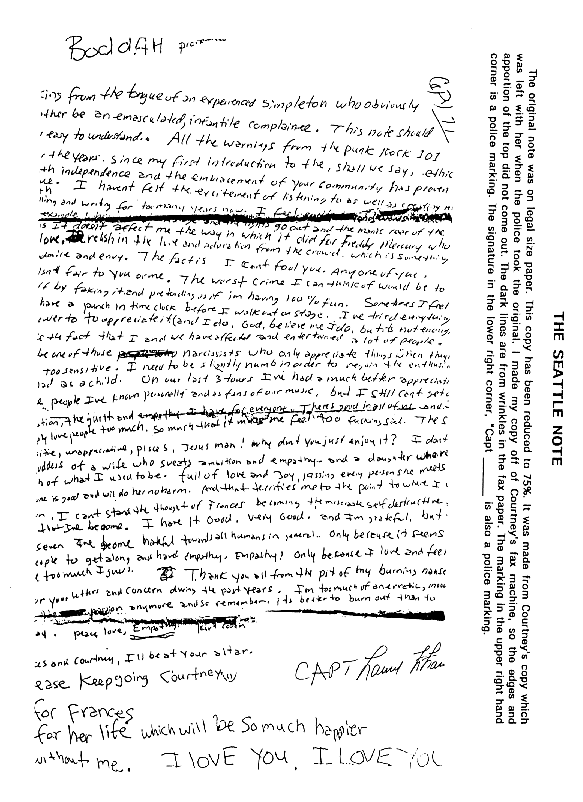 BoddAH
Cpt 71
ing from the tongue of an experienced simpleton who obviously
ther be an emasculated, infantile complainee. This note should
easy to understand. All the warnings from the punk Rock 101
the years. Since my first introduction to the, shall we say, ethic
th independence and the embracement of your community has proven
ue. I havent felt the excitement of listening to as well as creating
ing and writing for too many years now. I feel
go out and the manic roar of the
is It doesnt affect me the way in which it did for Freddy Mercury who
love, relish in the love and adoration from the crowd. which is something
dmire and envy. The fact is I cant fool you. Any one of you.
isnt fair to you or me. The worst crime I can think of would be to
ff by faking it and pretending as if im having 100% fun. Sometimes I feel
have a punch in time clock before I walk out on stage. I've tried everything
ower to appreciate it (and I do, God, believe me I do, but its not enough
the fact that I and we have affected and entertained a lot of people.
be one of those narcissists who only appreciate things when they
too sensitive. I need to be slightly numb in order to regain the enthusia
had as a child. On our last 3 tours Ive had a much better appreciati
people Ive known personally and as fans of our music, but I still cant get
tion, the guilt and empathy I have for everyone. Theres good in all of us and
ply love people too much. So much that it makes me feel too fucking sad. The s
itive, unappreciative, pisces, Jesus man! why dont you just enjoy it? I dont
oddess of a wife who sweats ambition and empathy. and a daughter who re
h of what I used to be. full of love and joy, kissing every person she meets
one is good and will do her no harm. And that terrifies me to the point to where I c
n. I cant stand the thought of Frances becoming the miserable self destructive,
that Ive become. I have it Good, very Good. and Im grateful, but
seven Ive become hateful towards all humans in general. Only because it seems
eople to get along and have empathy. Empathy! Only because I love and feel
e too much I guess. Thank you all from the pit of my burning nause
or your letters and concern during the past years. I'm too much of an erratic, moo
passion anymore and so remember, its better to burn out than to
ay. peace love, Empathy. Kurt Cobain
ces and Courtney, I'll be at your altar.
ease Keep going Courtney
CAPT
for Frances
for her life which will be so much happier
without me. I LOVE YOU, I LOVE YOU
THE SEATTLE NOTE
The original note was on legal size paper. This copy has been reduced to 75%. It was made from Courtney's copy which
was left with her when the police took the original. I made my copy off of Courtney's fax machine, so the edges and
apportion of the top did not come out. The dark lines are from wrinkles in the fax paper. The marking in the upper right hand
corner is a police marking. The signature in the lower right corner, "Capt ______ is also a police marking.